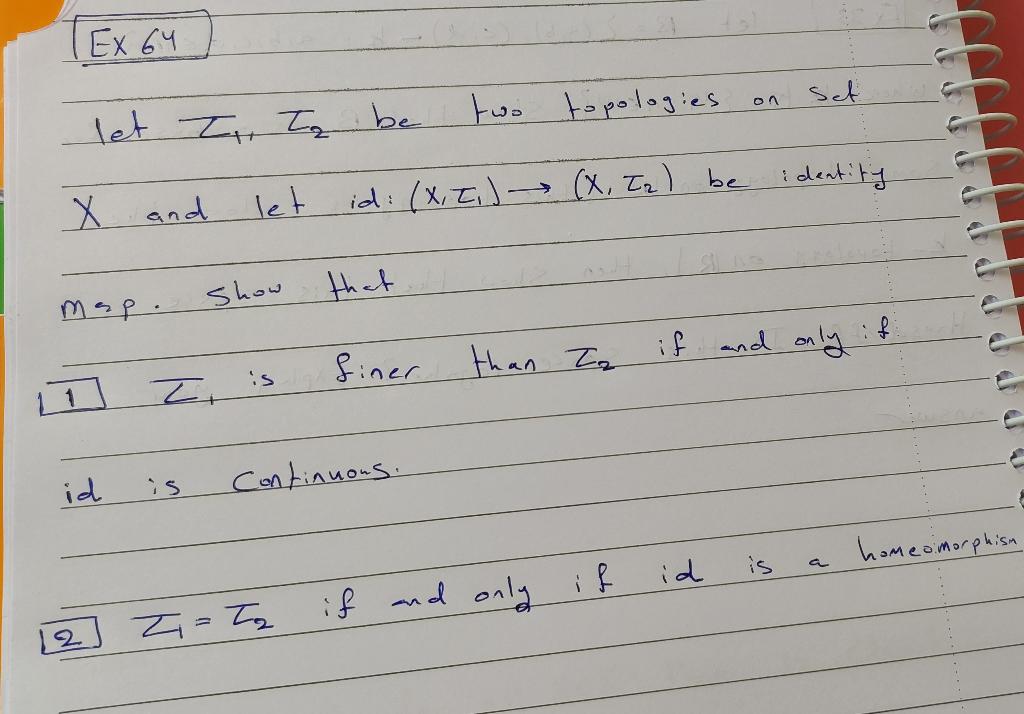 Ex 64
let τ₁, τ₂ be two topologies on set
X and let id: (X, τ₁) → (X, τ₂) be identity
map. Show that
1 τ₁ is finer than τ₂ if and only if
id is Continuous.
2 τ₁ = τ₂ if and only if id is a homeomorphism